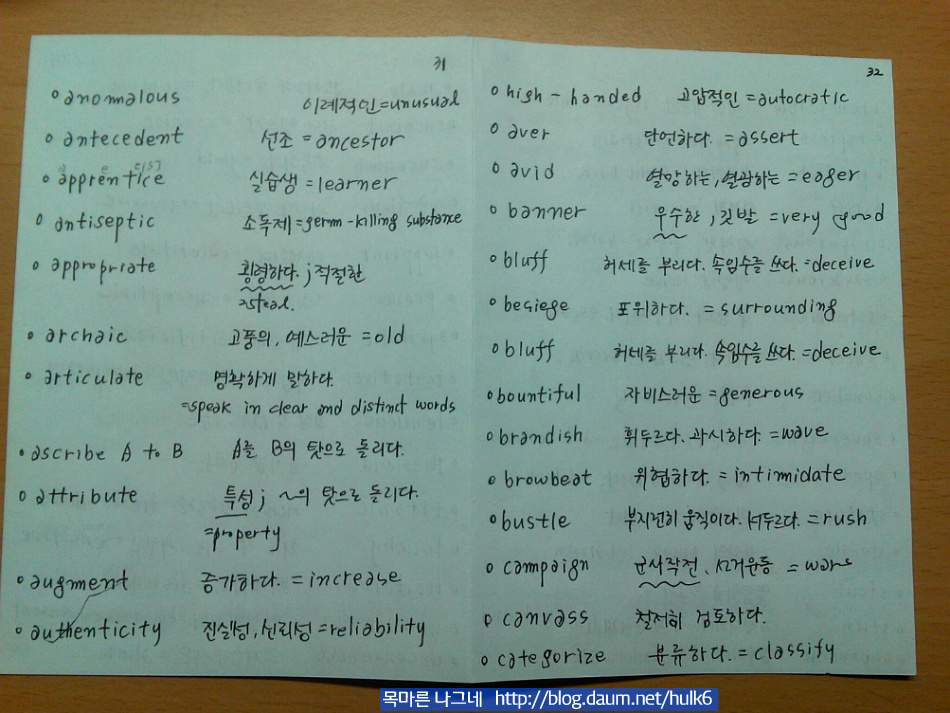 31
anomalous 이례적인=unusual
antecedent 선조=ancestor
apprentice 실습생=learner
antiseptic 소독제=germ-killing substance
appropriate 횡령하다. ; 적절한
=steal.
archaic 고풍의, 예스러운=old
articulate 명확하게 말하다.
=speak in clear and distinct words
ascribe A to B A를 B의 탓으로 돌리다.
attribute 특성; ~의 탓으로 돌리다.
=property
augment 증가하다.=increase
authenticity 진실성, 신뢰성=reliability
32
high-handed 고압적인=autocratic
aver 단언하다.=assert
avid 열망하는, 열광하는=eager
banner 우수한; 깃발=very good
bluff 허세를 부리다. 속임수를 쓰다.=deceive
besiege 포위하다.=surrounding
bluff 허세를 부리다. 속임수를 쓰다.=deceive
bountiful 자비스러운=generous
brandish 휘두르다. 과시하다.=wave
browbeat 위협하다.=intimidate
bustle 부지런히 움직이다. 서두르다.=rush
campaign 군사작전, 선거운동 =wars
canvass 철저히 검토하다.
categorize 분류하다.=classify
목마른 나그네 http://blog.daum.net/hulk6